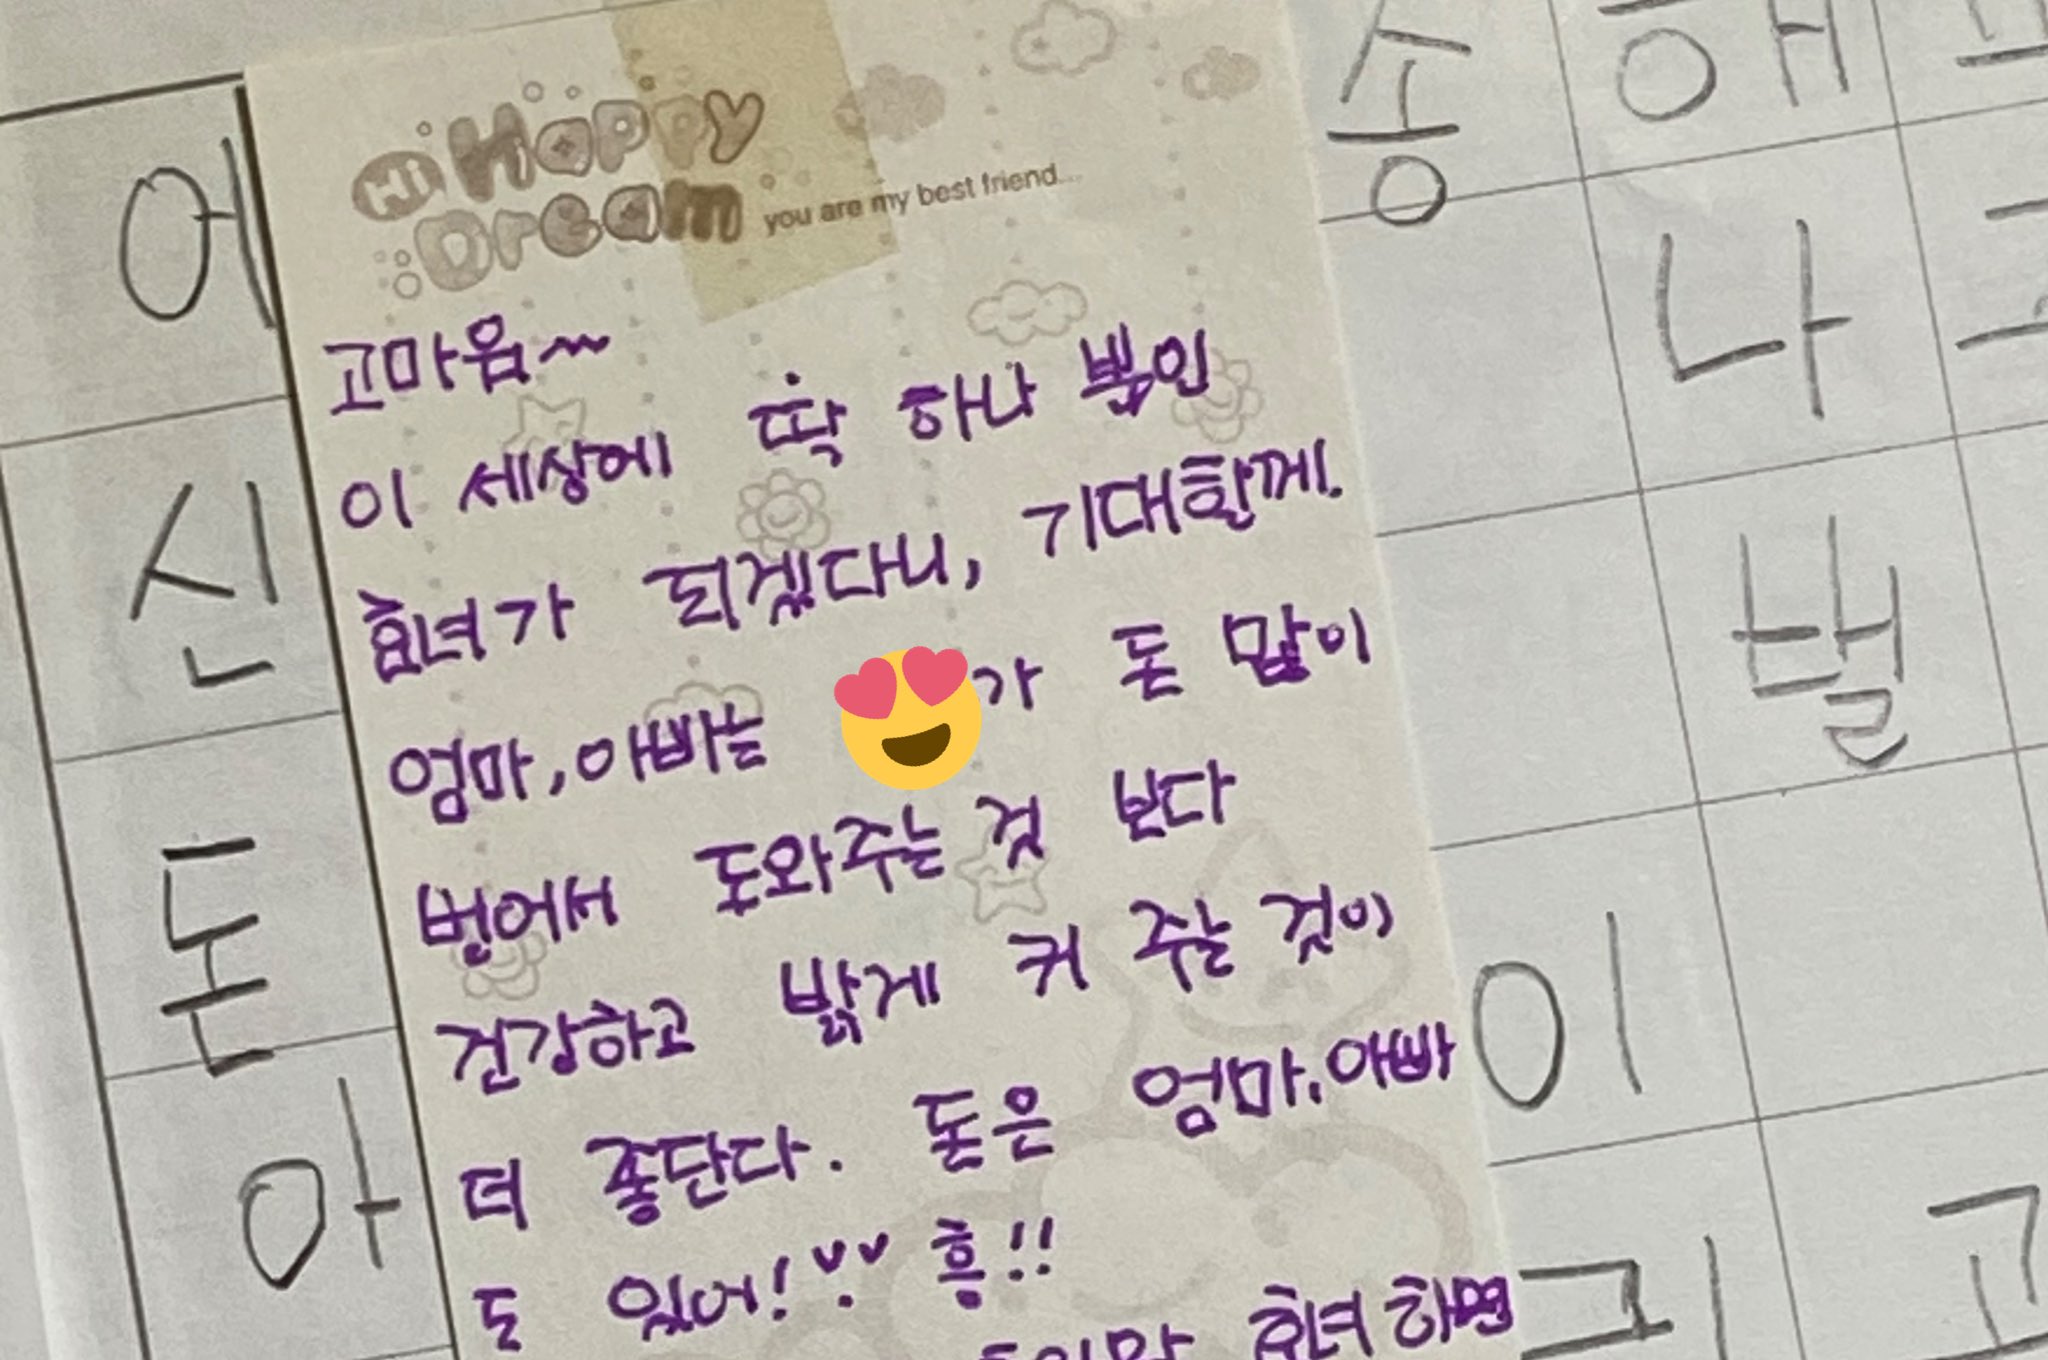 어
신
돈
아
Hi Happy
Dream you are my best friend...
고마워~
이 세상에 딱 하나 뿐인
효녀가 되겠다니, 기대할께.
엄마, 아빠는 😍가 돈 많이
벌어서 도와주는 것 보다
건강하고 밝게 커 주는 것이
더 좋단다. 돈은 엄마, 아빠
도 있어! 흥!!
효녀 하면
송
해
나
별
이